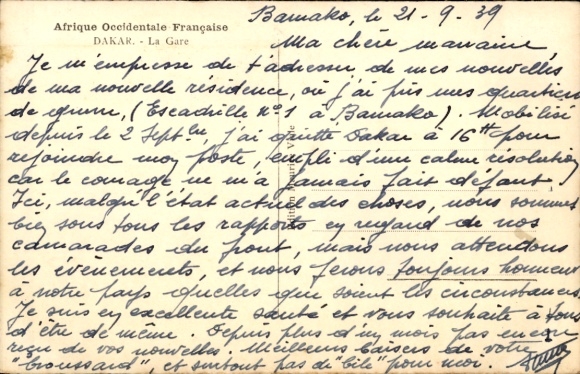 Afrique Occidentale Française
DAKAR. - La Gare
Bamako, le 21-9-39
Ma chère marraine,
Je m'empresse de t'adresser de mes nouvelles
de ma nouvelle résidence, où j'ai pris mes quartiers
de guerre, (Escadrille n°1 à Bamako). Mobilisé
depuis le 2 Septbre, j'ai quitté Dakar à 16H pour
rejoindre mon poste, empli d'une calme résolution
car le courage ne m'a jamais fait défaut.
Ici, malgré l'état actuel des choses, nous sommes
bien sous tous les rapports en regard de nos
camarades du front, mais nous attendons
les événements, et nous ferons toujours honneur
à notre pays quelles que soient les circonstances.
Je suis en excellente santé et vous souhaite à tous
d'être de même. Depuis plus d'un mois pas encore
reçu de vos nouvelles. Meilleurs baisers de votre
"broussard", et surtout pas de "bile" pour moi.